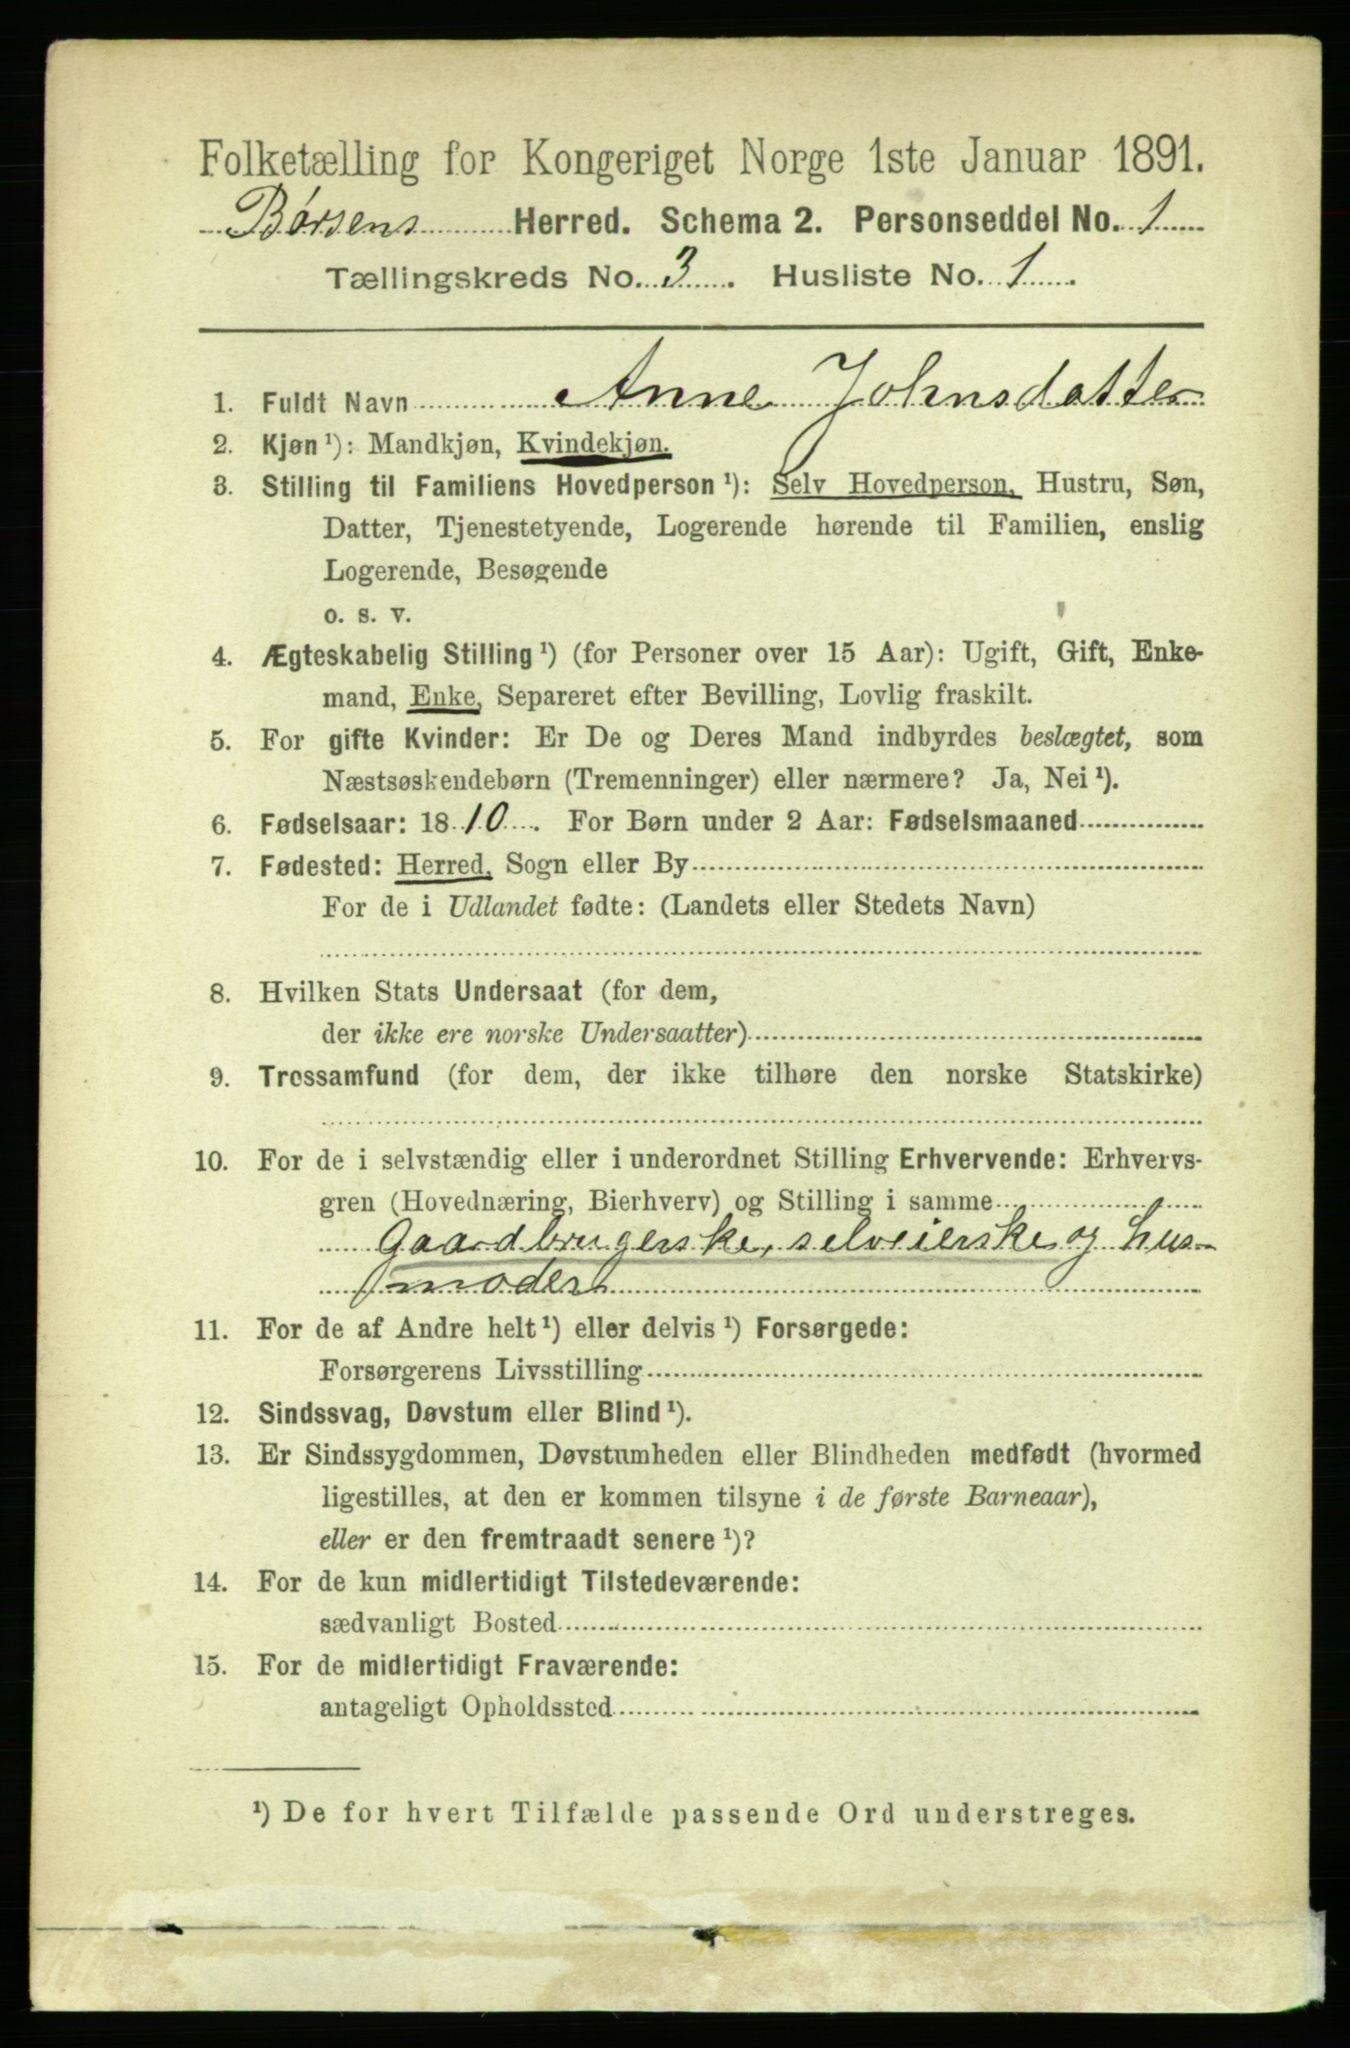 Folketælling for Kongeriget Norge 1ste Januar 1891.
Børsens Herred. Schema 2. Personseddel No. 1
Tællingskreds No. 3. Husliste No. 1.
1. Fuldt Navn Anne Johnsdatter
2. Kjøn¹): Mandkjøn, Kvindekjøn.
3. Stilling til Familiens Hovedperson¹): Selv Hovedperson, Hustru, Søn,
Datter, Tjenestetyende, Logerende hørende til Familien, enslig
Logerende, Besøgende
o. s. v.
4. Ægteskabelig Stilling¹) (for Personer over 15 Aar): Ugift, Gift, Enke-
mand, Enke, Separeret efter Bevilling, Lovlig fraskilt.
5. For gifte Kvinder: Er De og Deres Mand indbyrdes beslægtet, som
Næstsøskendebørn (Tremenninger) eller nærmere? Ja, Nei¹).
6. Fødselsaar: 1810. For Børn under 2 Aar: Fødselsmaaned
7. Fødested: Herred, Sogn eller By
For de i Udlandet fødte: (Landets eller Stedets Navn)
8. Hvilken Stats Undersaat (for dem,
der ikke ere norske Undersaatter)
9. Trossamfund (for dem, der ikke tilhøre den norske Statskirke)
10. For de i selvstændig eller i underordnet Stilling Erhvervende: Erhvervs-
gren (Hovednæring, Bierhverv) og Stilling i samme
Gaardbrugerske, selveierske og hus-
moder
11. For de af Andre helt¹) eller delvis¹) Forsørgede:
Forsørgerens Livsstilling
12. Sindssvag, Døvstum eller Blind¹).
13. Er Sindssygdommen, Døvstumheden eller Blindheden medfødt (hvormed
ligestilles, at den er kommen tilsyne i de første Barneaar),
eller er den fremtraadt senere¹)?
14. For de kun midlertidigt Tilstedeværende:
sædvanligt Bosted
15. For de midlertidigt Fraværende:
antageligt Opholdssted
¹) De for hvert Tilfælde passende Ord understreges.